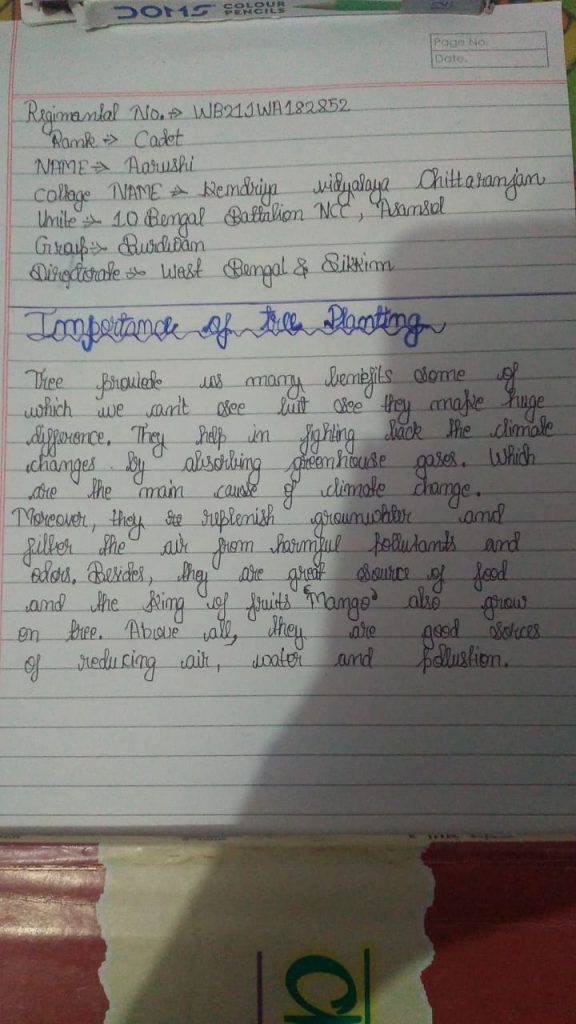 DOMS COLOUR PENCILS
Page No.
Date.
Regimantal No. → WB21JWA182852
Rank → Cadet
NAME → Aarushi
Collage NAME → Kendriya vidyalaya Chittaranjan
Unite → 10 Bengal Battalion NCC, Asansol
Group → Burdwan
Directorate → West Bengal & Sikkim
Importance of tree Planting
Tree provide us many benefits some of
which we can't see but see they make huge
difference. They help in fighting back the climate
changes by absorbing greenhouse gases. Which
are the main cause of climate change.
Moreover, they re replenish grounwhter and
filter the air from harmful pollutants and
odors. Besides, they are great source of food
and the king of fruits "Mango" also grow
on tree. Above all, they are good sorces
of reducing air, water and pollustion.